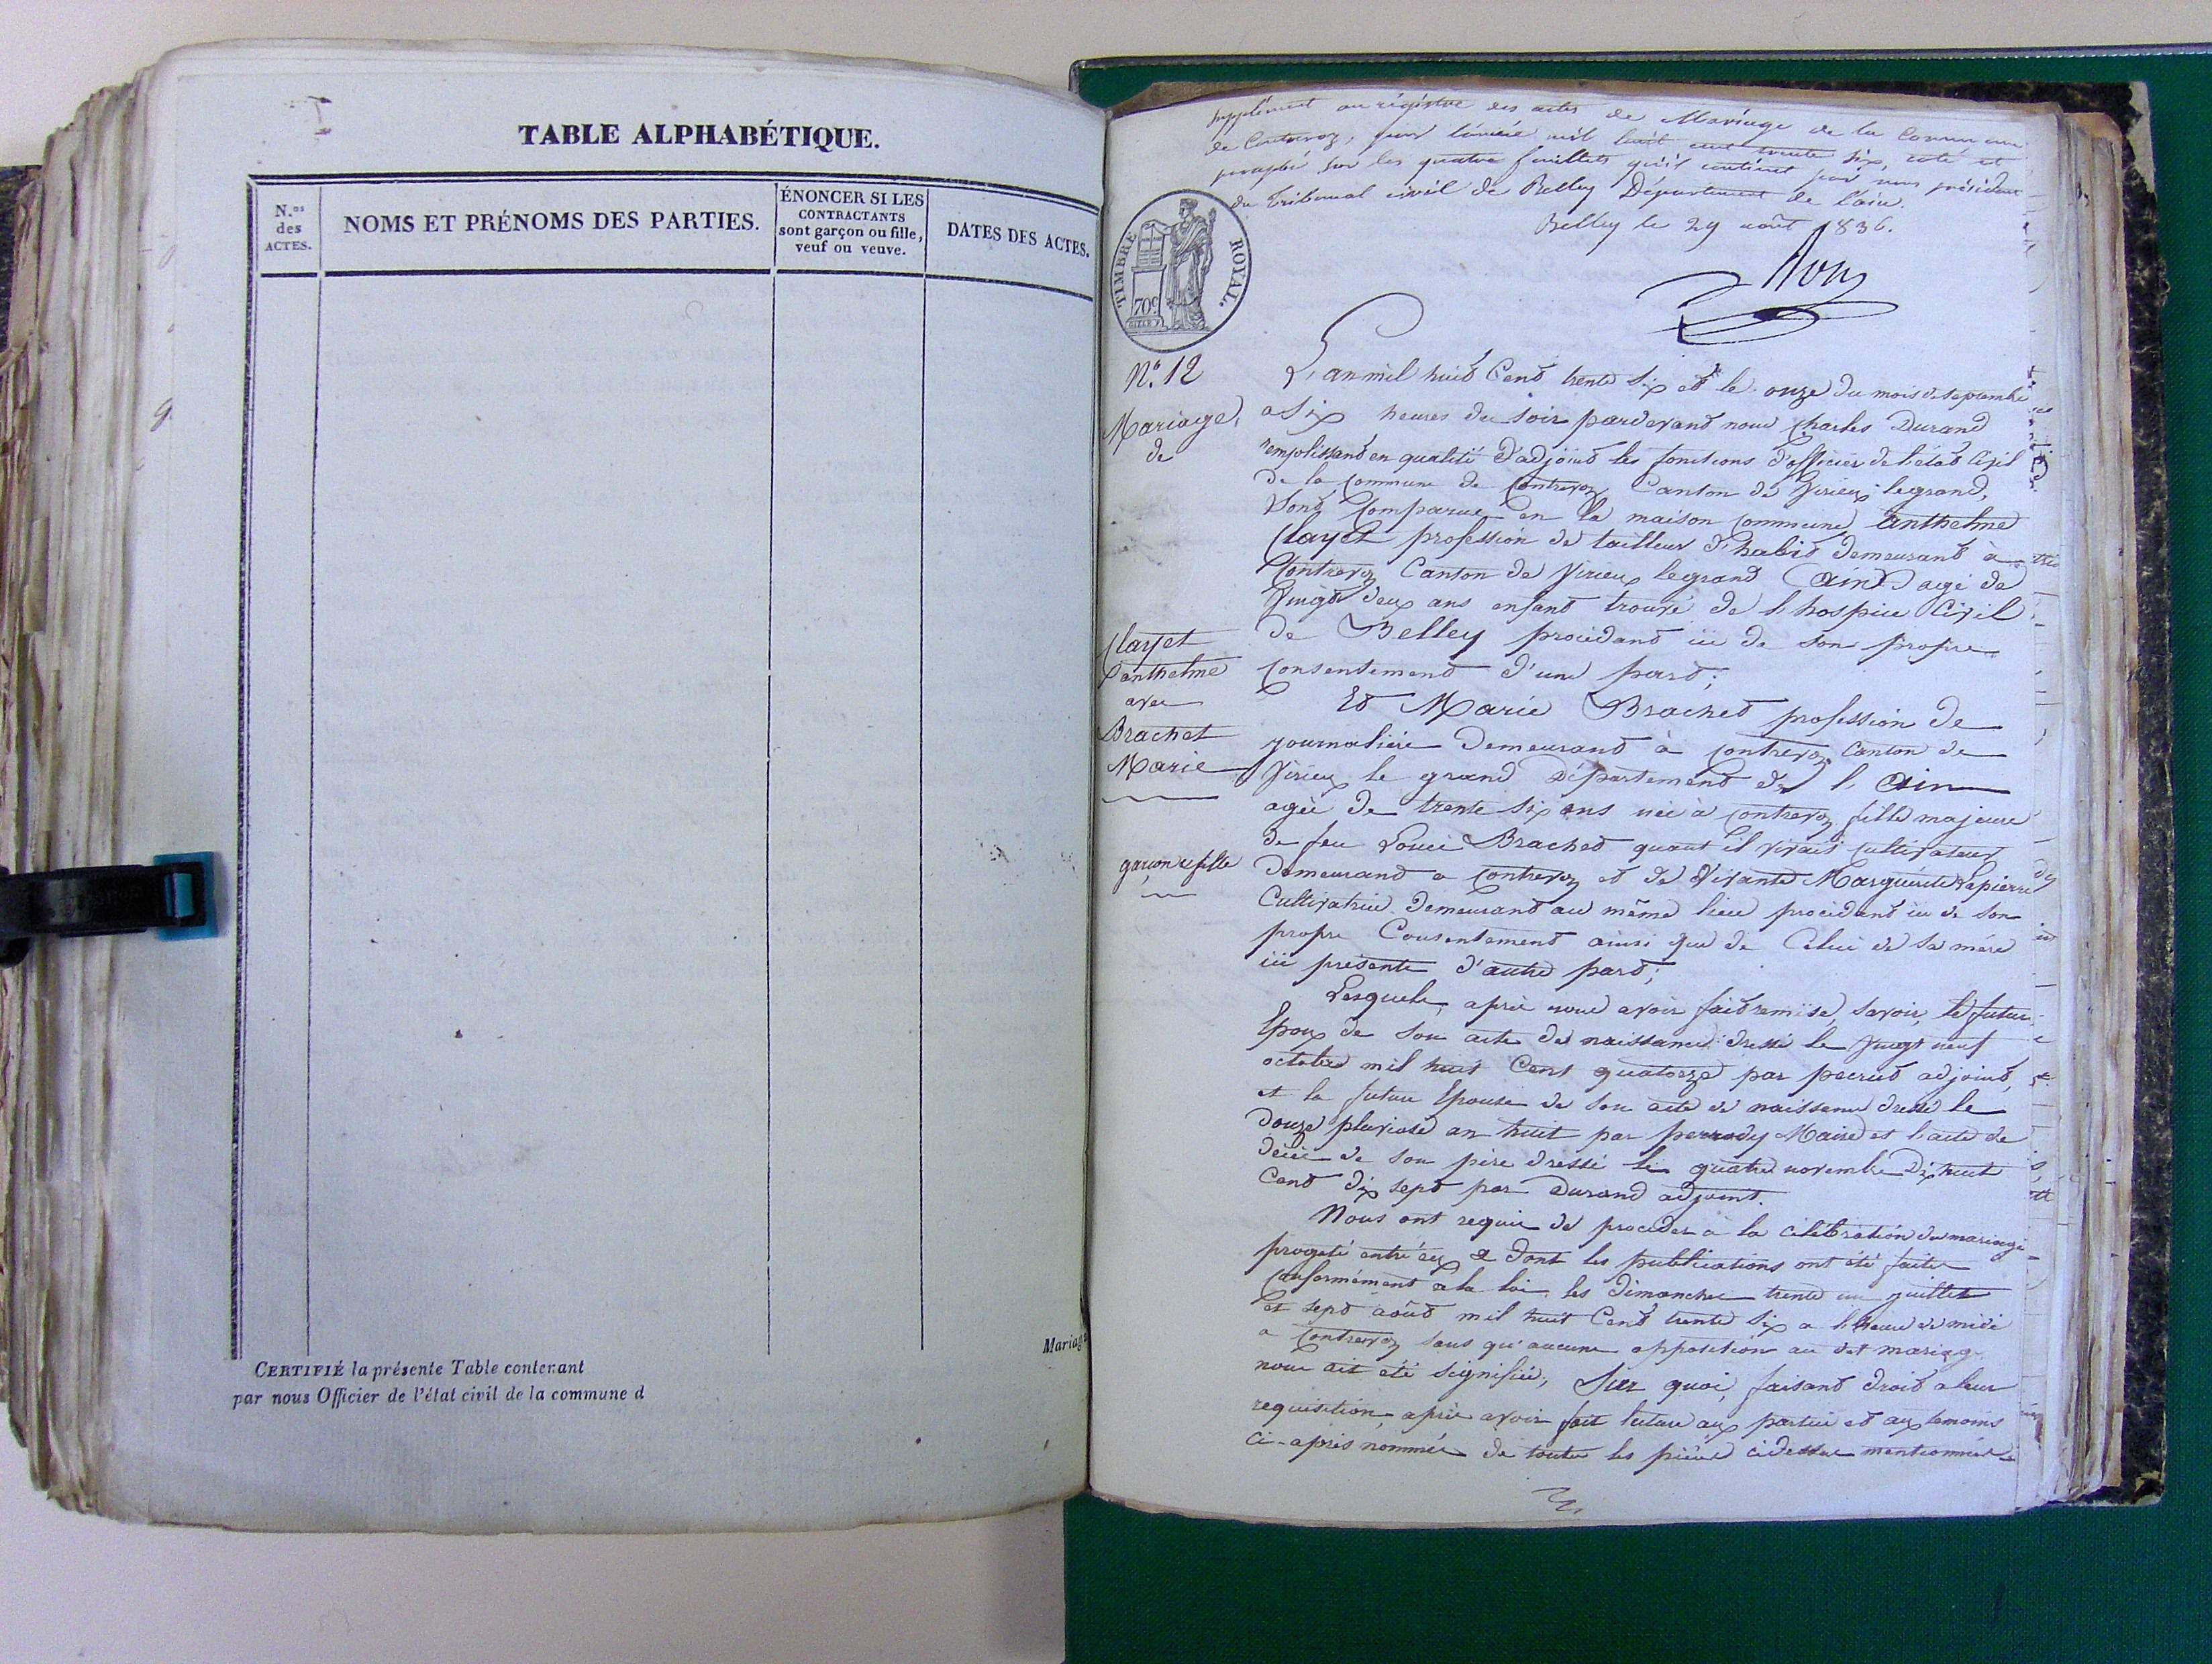 TABLE ALPHABÉTIQUE.
N.os
des
ACTES.
NOMS ET PRÉNOMS DES PARTIES.
ÉNONCER SI LES
CONTRACTANTS
sont garçon ou fille,
veuf ou veuve.
DATES DES ACTES.
Mariag
CERTIFIÉ la présente Table contenant
par nous Officier de l'état civil de la commune d
Supplément au régistre des actes de Mariage de la Commune
de Contrevoz, pour l'année mil huit cent trente six, coté et
paraphé sur les quatre feuillets qu'il contient par nous président
du Tribunal civil de Belley Département de l'ain.
Belley le 29 août 1836.
TIMBRE ROYAL.
70c
N.° 12
Mariage,
de
Clayet
anthelme
avec
Brachet
Marie
garçon et fille
L'an mil huit Cent trente six et le onze du mois de septembre
a six heures du soir pardevant nous Charles Durand
remplissant en qualité d'adjoint les fonctions d'officier de l'état Civil
de la Commune de Contrevoz Canton de Virieu legrand,
Sont Comparus en la maison Commune, anthelme
Clayet profession de tailleur d'habit demeurant à
Contrevoz Canton de Virieu legrand (ain) agé de
Vingt deux ans enfant trouvé de l'hospice Civil
de Belley procédant ici de son propre
Consentement d'une part;
Et Marie Brachet profession de
journaliére demeurant à Contrevoz Canton de
Virieu le grand Département de l'ain
agée de trente six ans née à Contrevoz fille majeure
de feu Louis Brachet quant il vivait Cultivateur
demeurant a Contrevoz et de Vivante Marguerite Lapierre
Cultivatrice demeurant au même lieu procédant ici de son
propre Consentement ainsi que de Celui de sa mére
ici presente d'autre part;
Lesquels, aprés nous avoir fait remise, savoir, le futur
Epoux de son acte de naissance dressé le Vingt neuf
octobre mil huit Cent quatorze par adjoint,
et la future Epouse de son acte de naissance dressé le
douze pluviose an huit par perrody Maire et l'acte de
décés de son pére dressé le quatre novembre Dix huit
Cent dix sept par Durand adjoint.
Nous ont requis de proceder a la célébration du mariage
progeté entr'eux et dont les publications ont été faites
Conformément a la loi les dimanches trente un juillet
et sept août mil huit Cent trente six a l'heure de midi
a Contrevoz sans qu'aucune opposition au dit mariage
nous ait été signifiée, Sur quoi, faisant droit a leur
requisition, aprés avoir fait lecture aux parties et aux temoins
Ci-aprés nommés de toutes les piéces cidessus mentionnées